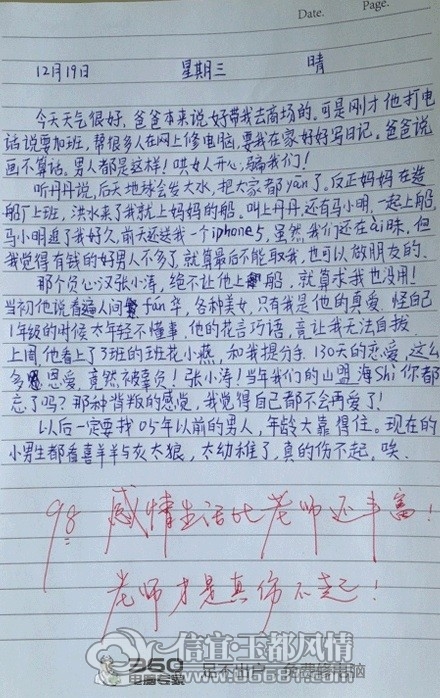 Date.
Page.
12月19日 星期三 晴
今天天气很好，爸爸本来说好带我去商场的。可是刚才他打电
话说要加班，帮很多人在网上修电脑，要我在家好好写日记。爸爸说
画不算话。男人都是这样！哄女人开心，骗我们！
听丹丹说，后天地球会发大水，把大家都yān了。反正妈妈在造
船厂上班，洪水来了我就上妈妈的船。叫上丹丹，还有马小明，一起上船，
马小明追了我好久，前天还送我一个iphone5，虽然我们还在ài昧，但
我觉得有钱的好男人不多了，就算最后不能取我，也可以做朋友的。
那个负心汉张小涛，绝不让他上船，就算求我也没用！
当初他说看遍人间fán华，各种美女，只有我是他的真爱，怪自己
1年级的时候太年轻不懂事，他的花言巧语，竟让我无法自拔
上周他看上了3班的班花小燕，和我提分手，130天的恋爱，这么
多恩爱，竟然被辜负！张小涛！当年我们的山盟海Shì你都
忘了吗？那种背叛的感觉，我觉得自己都不会再爱了！
以后一定要找05年以前的男人，年龄大靠得住。现在的
小男生都看喜羊羊与灰太狼，太幼稚了，真的伤不起，唉．
98 感情生活比老师还丰富！
老师才是真伤不起！
信宜·玉都风情
360
电脑专家
足不出户 免费修电脑